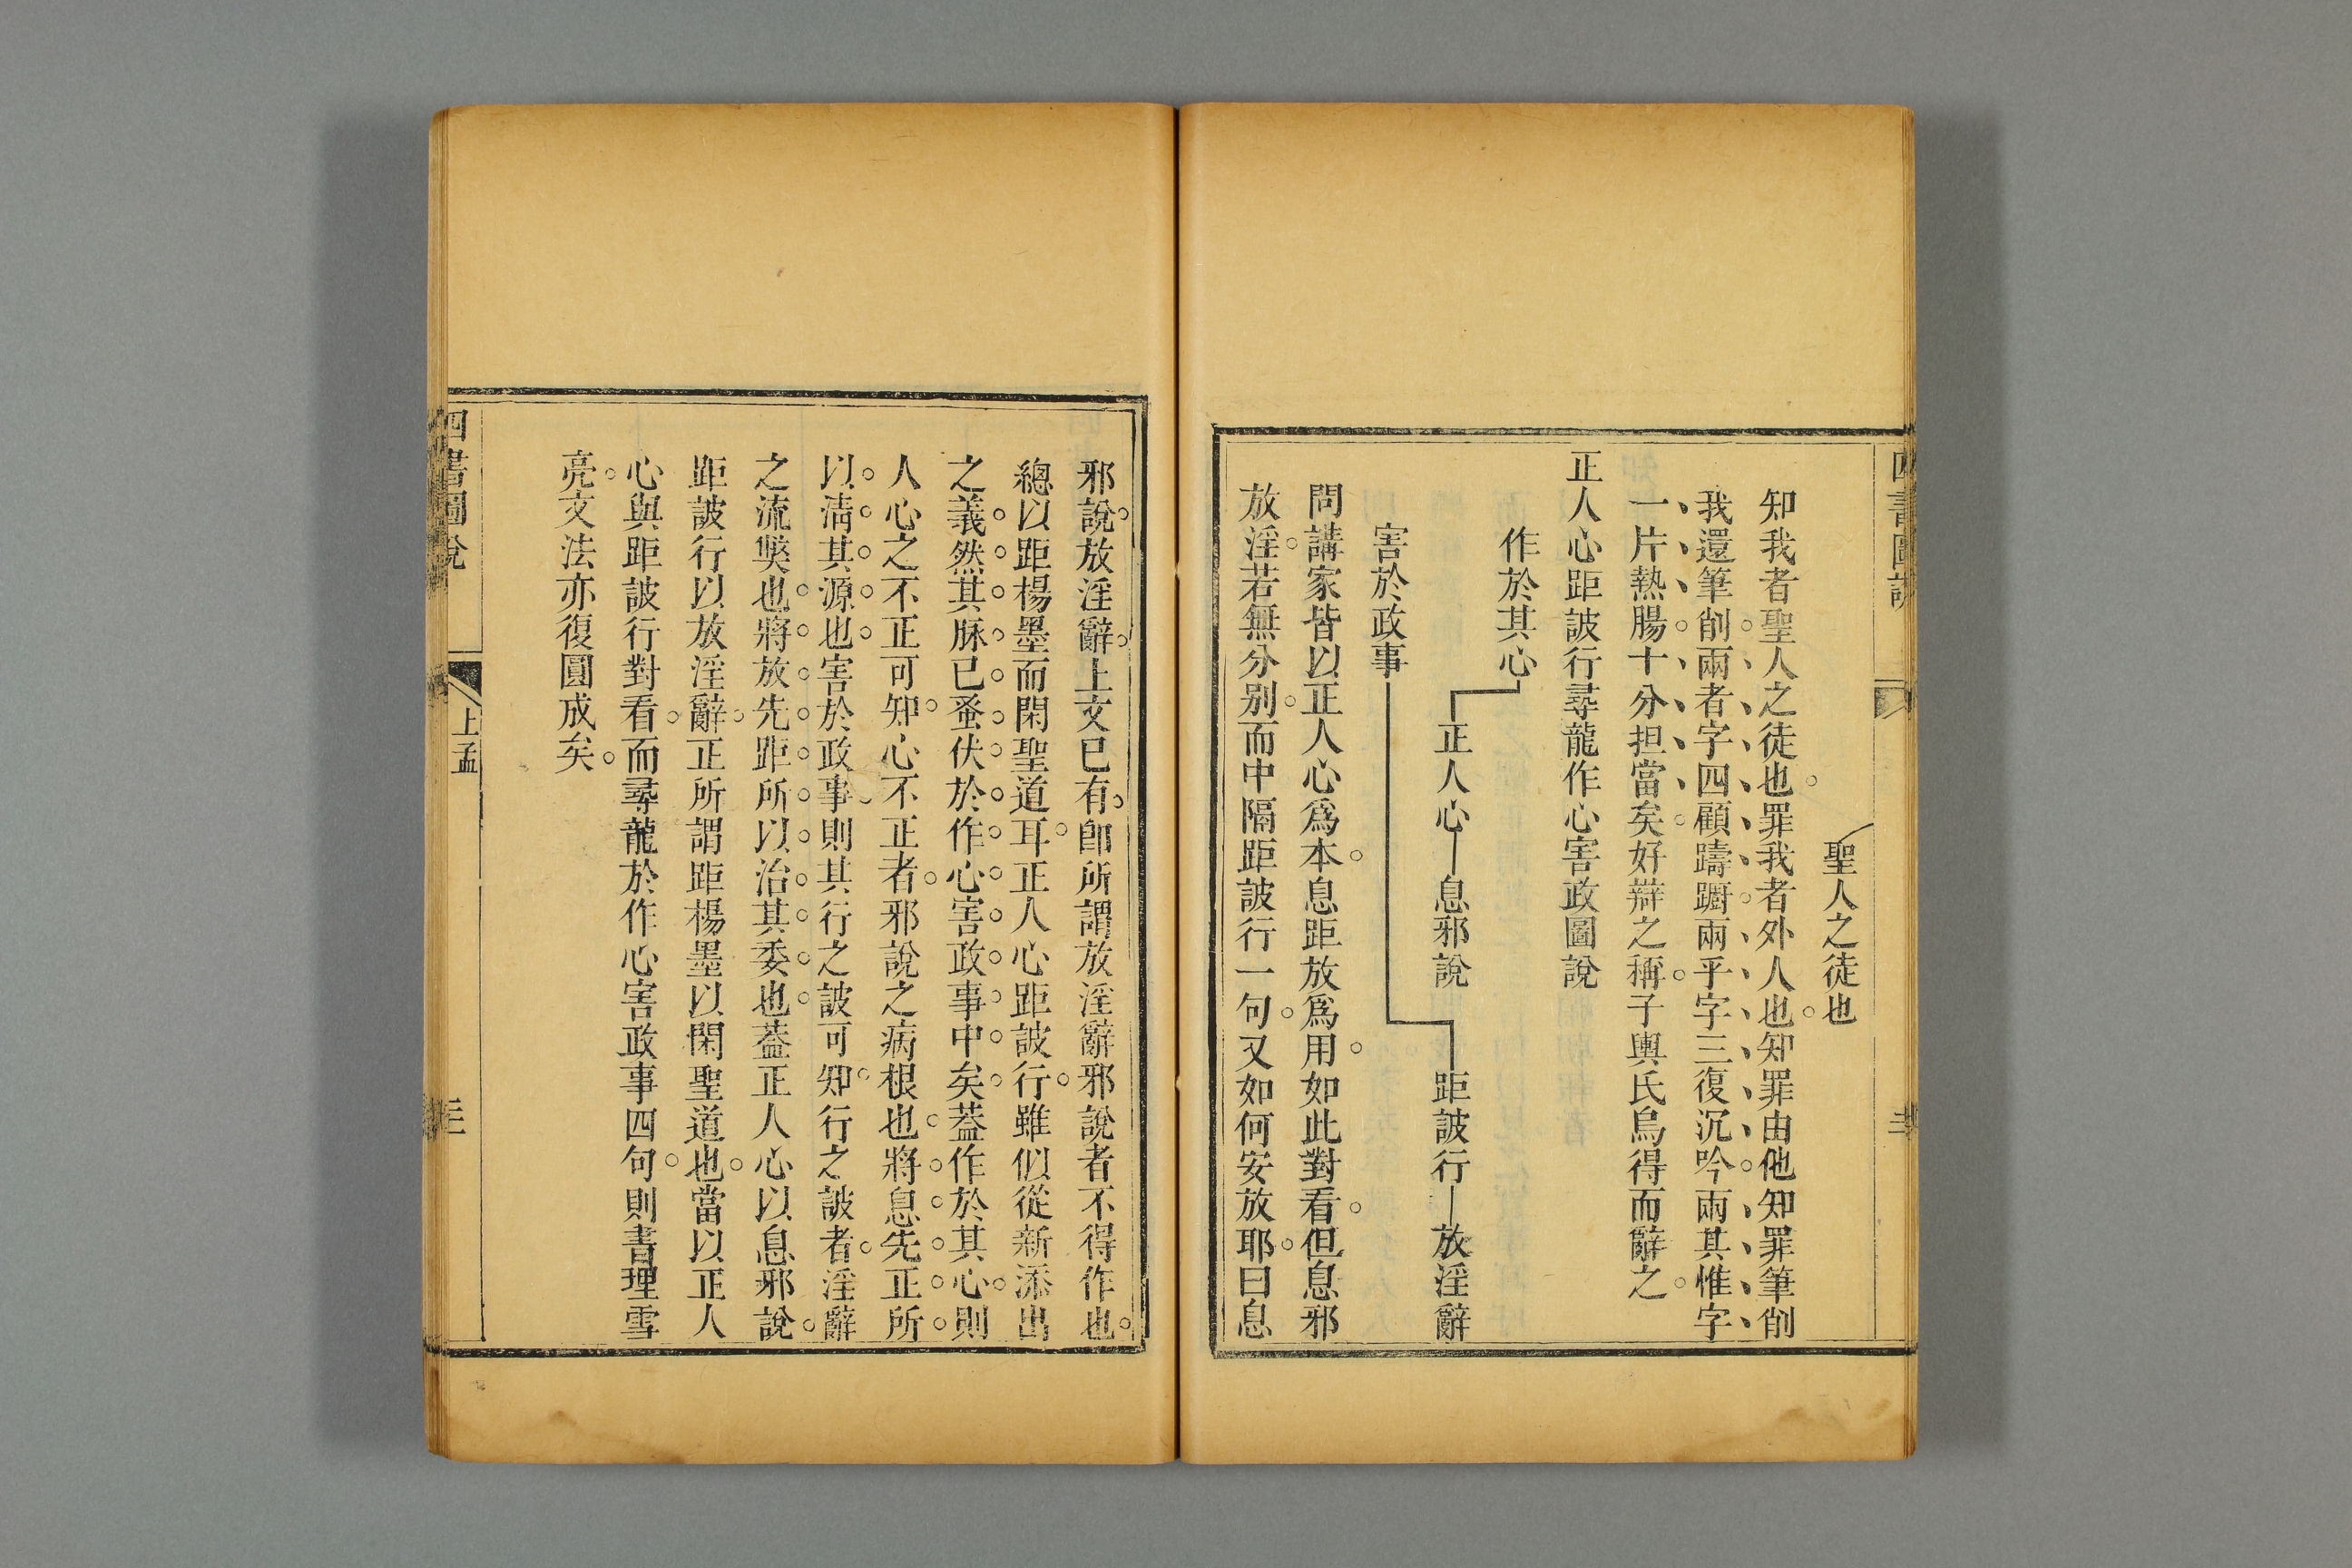 四書圖說
聖人之徒也
知我者聖人之徒也罪我者外人也知罪由他知罪筆削
我還筆削兩者字四顧躊躕兩乎字三復沉吟兩其惟字
一片熱腸十分担當矣好辯之稱子輿氏烏得而辭之
正人心距詖行尋龍作心害政圖說
作於其心
正人心息邪說
距詖行放淫辭
害於政事
問講家皆以正人心爲本息距放爲用如此對看但息邪
放淫若無分别而中隔距詖行一句又如何安放耶曰息
邪說放淫辭上文已有卽所謂放淫辭邪說者不得作也
總以距楊墨而閑聖道耳正人心距詖行雖似從新添出
之義然其脉已蚤伏於作心害政事中矣蓋作於其心則
人心之不正可知心不正者邪說之病根也將息先正所
以清其源也害於政事則其行之詖可知行之詖者淫辭
之流獘也將放先距所以治其委也蓋正人心以息邪說
距詖行以放淫辭正所謂距楊墨以閑聖道也當以正人
心與距詖行對看而尋龍於作心害政事四句則書理雪
亮文法亦復圓成矣
四書圖說
上孟